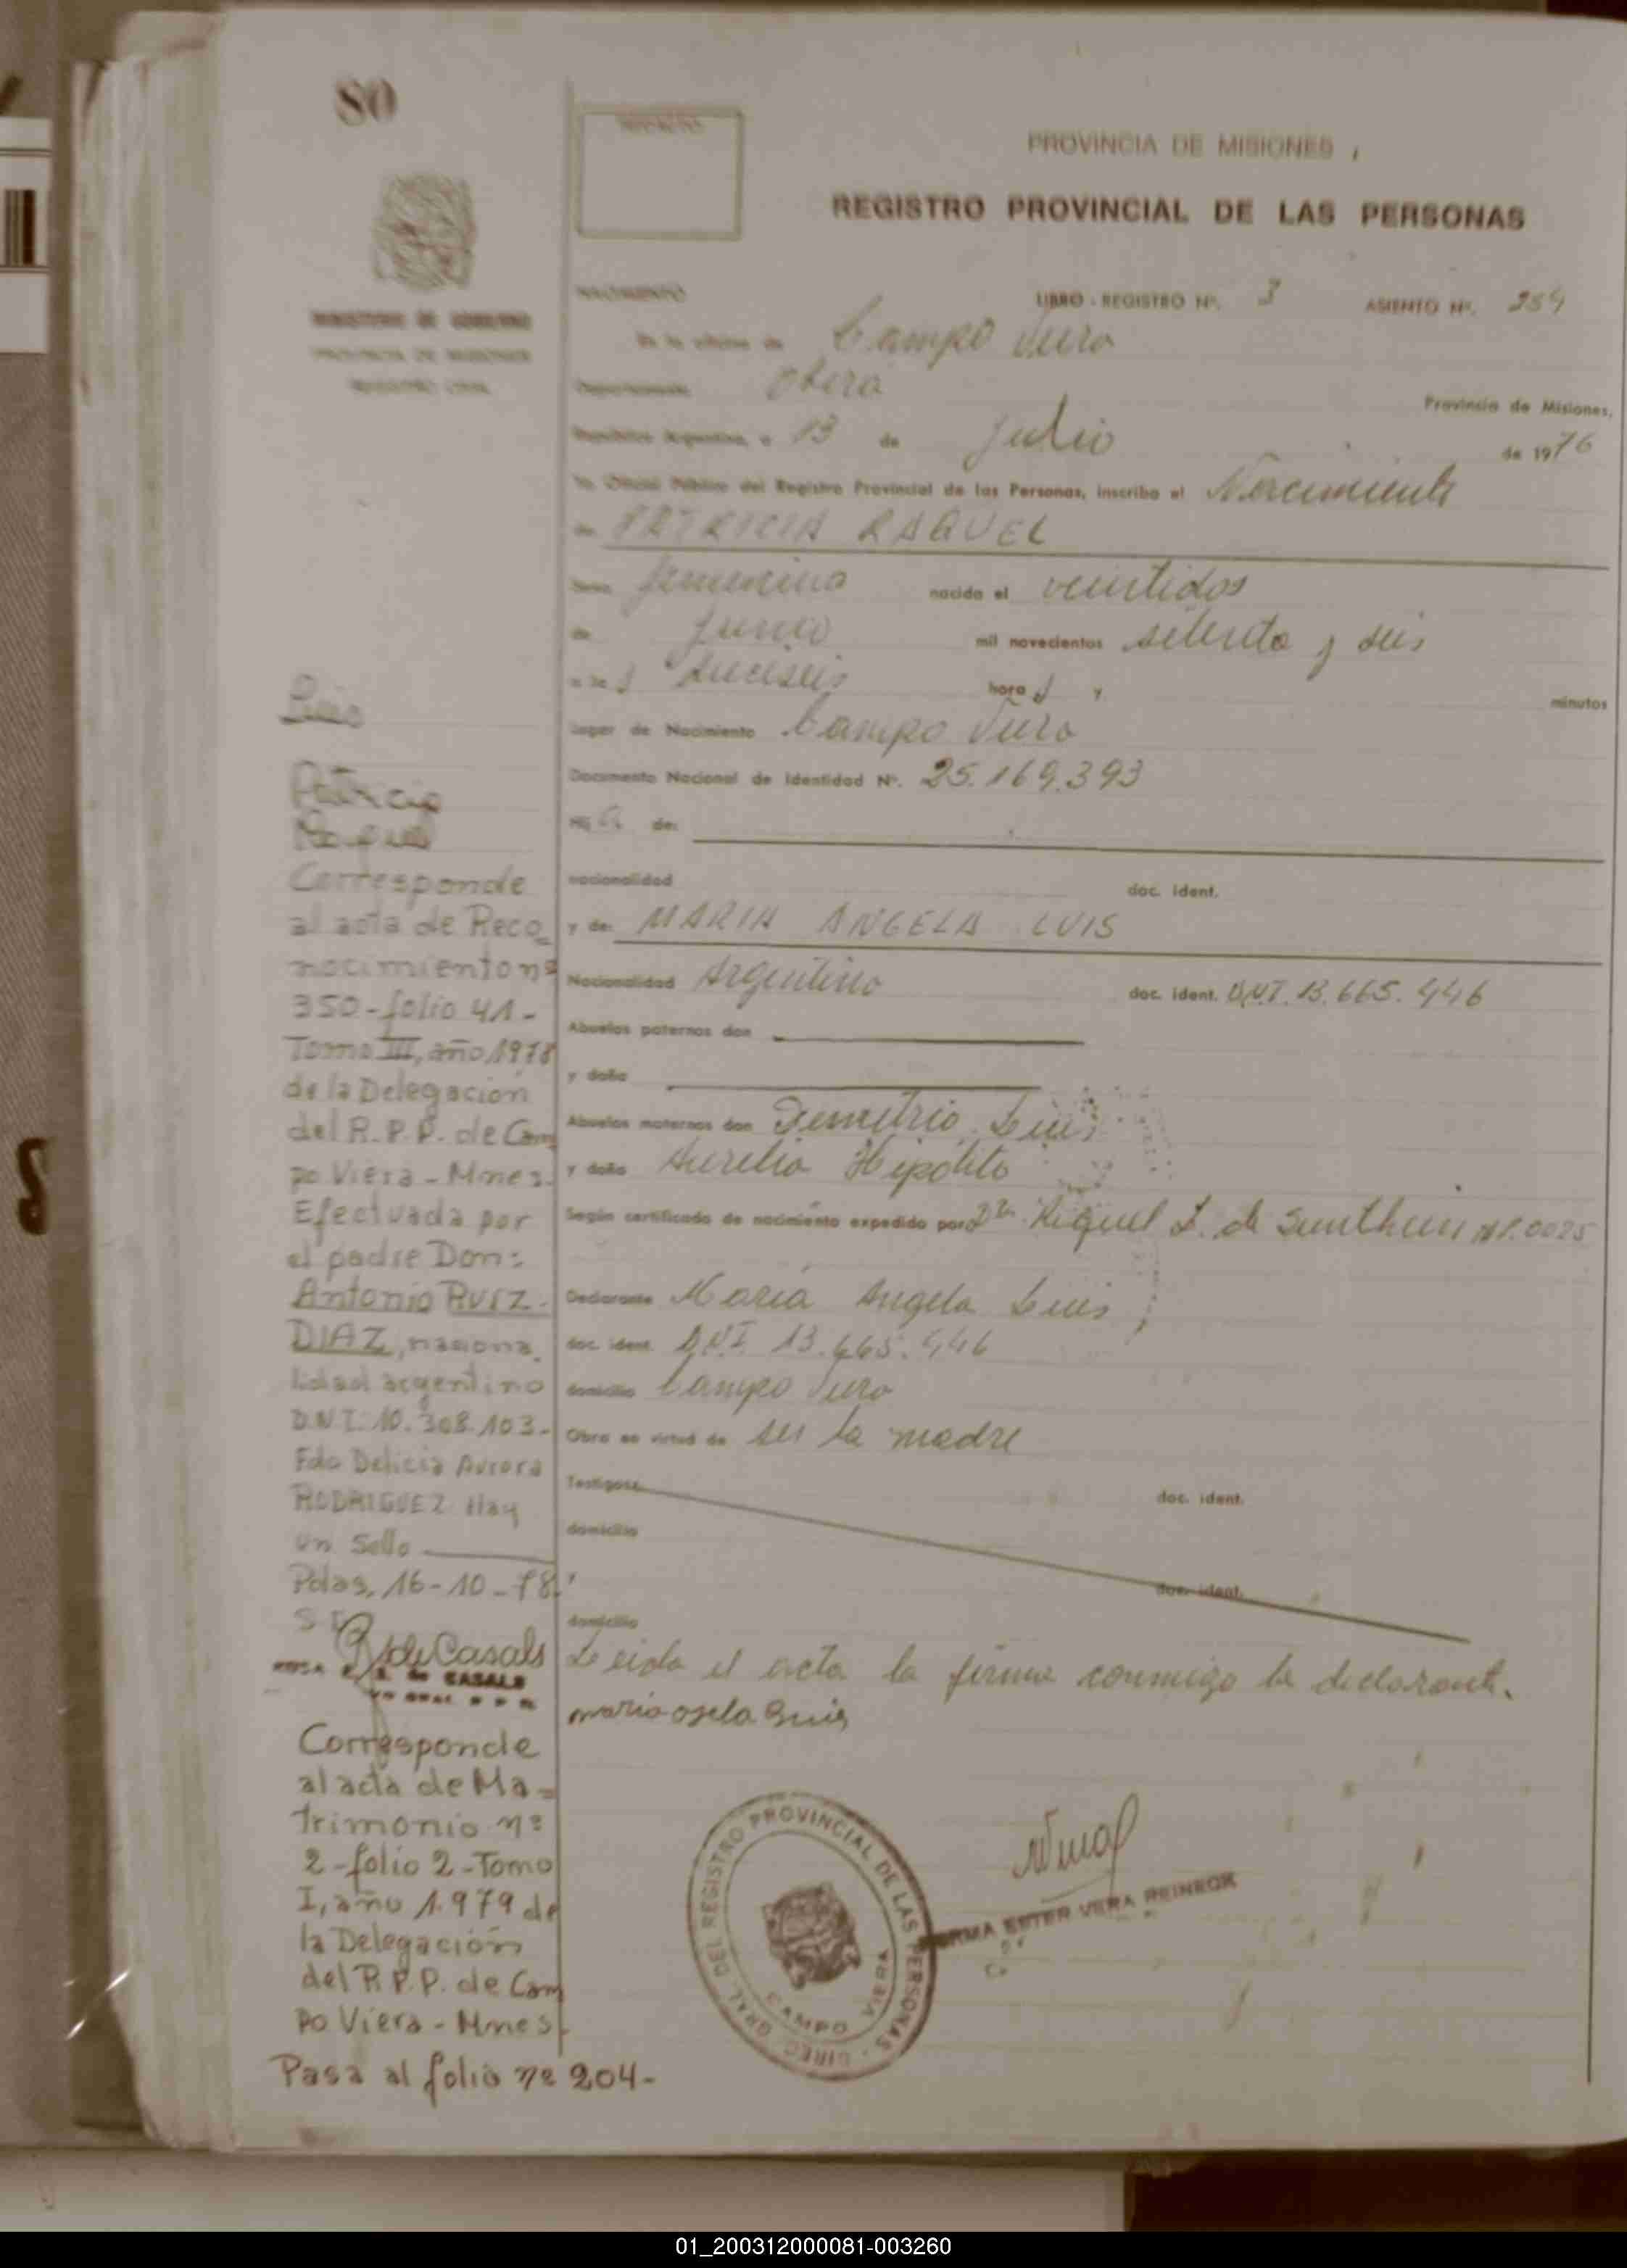 80
PROVINCIA DE MISIONES
REGISTRO PROVINCIAL DE LAS PERSONAS
MINISTERIO DE GOBIERNO
PROVINCIA DE MISIONES
REGISTRO CIVIL
NACIMIENTO
LIBRO - REGISTRO Nº. 3 ASIENTO Nº. 254
En la oficina de Campo Viera
Departamento Oberá
Provincia de Misiones,
República Argentina, a 13 de Julio de 1976
Yo Oficial Público del Registro Provincial de las Personas, inscribo el Nacimiento
de PATRICIA RAQUEL
Sexo femenino nacida el veintidos
de Junio mil novecientos setenta y seis
a las dieciseis horas y minutos
Lugar de Nacimiento Campo Viera
Documento Nacional de Identidad Nº. 25.169.393
Hija de:
nacionalidad doc. ident.
y de: MARIA ANGELA LUIS
Nacionalidad Argentina doc. ident. D.N.I. 13.665.446
Abuelos paternos don
y doña
Abuelos maternos don Demetrio Luis
y doña Aurelia Hipolito
Según certificado de nacimiento expedido por Miguel de
Declarante María Angela Luis
doc. ident. D.N.I. 13.665.446
domicilio Campo Viera
Obra en virtud de ser la madre
Testigos: doc. ident.
domicilio
doc. ident.
domicilio
Leida el acta la firma conmigo la declarante.
Luis
Patricia
Raquel
Corresponde
al acta de Reco
nocimiento nº
350-folio 41-
Tomo III, año 1978
de la Delegación
del R.P.P. de Cam
po Viera - Mnes.
Efectuada por
el padre Don:
Antonio RUIZ
DIAZ, naciona
lidad argentino
D.N.I. 10.308.103-
Fdo Delicia Aurora
RODRIGUEZ Hay
un Sello
Pdas, 16-10-78.
de Casals
ROSA de CASALS
Corresponde
al acta de Ma=
trimonio nº
2-folio 2-Tomo
I, año 1.979 de
la Delegación
del R.P.P. de Cam
po Viera - Mnes.
Pasa al folio nº 204-
DIREC. GRAL. DEL REGISTRO PROVINCIAL DE LAS PERSONAS
CAMPO VIERA
NORMA ESTER VERA REINECK
01_200312000081-003260